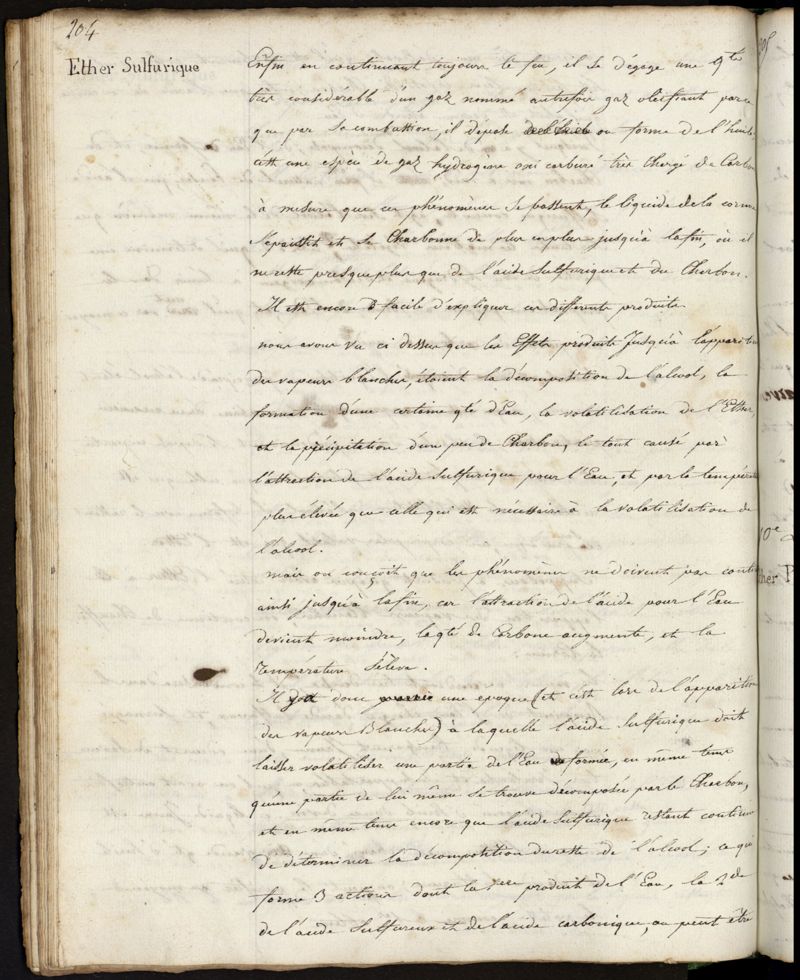 204
Ether Sulfurique
Enfin en continuant toujours le feu, il se dégage une qté
très considérable d'un gaz nommé autrefois gaz oleifiant parce
que par sa combustion, il dépose ou forme de l'huile
c'est une espèce de gaz hydrogene oxi carburé très chargé de Carbone
à mesure que ces phénomènes se passent, le liquide de la cornue
s'epaissit et se Charbonne de plus en plus jusqu'à la fin, où il
ne reste presque plus que de l'acide sulfurique et du Charbon.
Il est encore facile d'expliquer ces differents produits
nous avons vu ci dessus que les Effets produits jusqu'à l'apparition
des vapeurs blanches, étaient la décomposition de l'alcool, la
formation d'une certaine qté d'Eau, la volatilisation de l'Ether,
et la précipitation d'un peu de Charbon, le tout causé par
l'attraction de l'acide sulfurique pour l'Eau, et par la température
plus élevée que celle qui est nécessaire à la volatilisation de
l'alcool.
mais on conçoit que les phénomènes ne doivent pas continuer
ainsi jusqu'à la fin, car l'attraction de l'acide pour l'Eau
devient moindre, la qté de Carbone augmente, et la
température s'élève.
Il donc une epoque (et c'est lors de l'apparition
des vapeurs Blanches) à laquelle l'acide sulfurique doit
laisser volatiliser une partie de l'Eau formée, en même tems
qu'une partie de lui même se trouve décomposée par le Charbon,
et en même tems encore que l'acide sulfurique restant continue
de déterminer la décomposition du reste de l'alcool; ce qui
forme 3 actions dont la 1ere produit de l'Eau, la 2de
de l'acide sulfureux et de l'acide carbonique, ou peut être